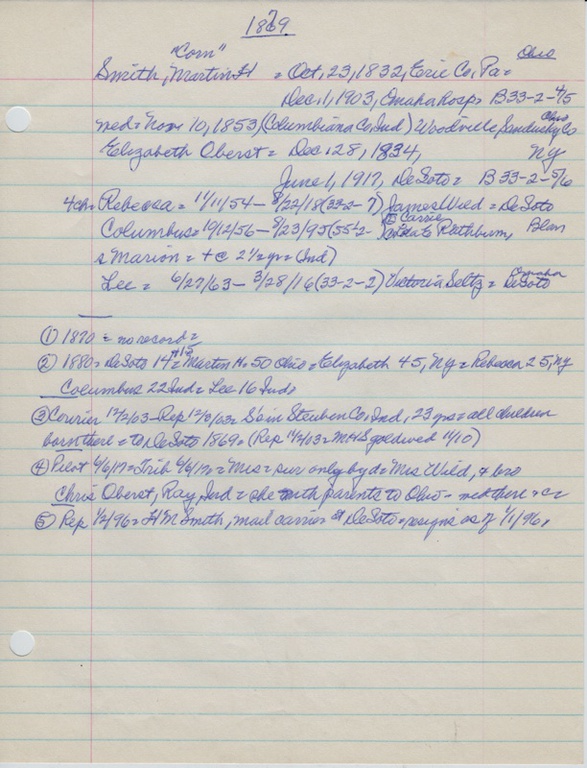 1869
?
"Corn" Ohio
Smith, Martin H = Oct, 23, 1832, Erie Co, Pa =
Dec, 1, 1903, Omaha hosp = B33-2-4/15
med = Nov 10, 1853, (Columbiana Co, Ind) Woodville Sandusky Co Ohio
Elizabeth Oberst = Dec 28, 1834, NY
June 1, 1917, DeSoto = B33-2-5/6
4ch = Rebecca = 11/11/54 - 8/22/18 (33-2- ) James Wild = DeSoto
Columbus = 10/12/56 - 8/23/95 (55-2 Carrie Kate Rathburn, Blair
s Marion = + c 2 1/2 yr = (Ind)
Lee = 6/27/63 - 3/28/16 (33-2-2) Victoria Seltz = DeSoto Omaha
① 1870 = no record =
② 1880 = DeSoto 14 = #15 Martin H = 50 Ohio = Elizabeth 45, NY = Rebecca 25, NY
Columbus 22 Ind = Lee 16 Ind =
③ Courier 12/2/03 - Rep 12/3/03 = S in Steuben Co, Ind, 23 yrs = all children
born there = to DeSoto 1869 = (Rep 11/12/03 = M H S gold wed 11/10)
④ Pilot 6/6/17 = Trib 6/6/17 = Mrs = sur only by d = Mrs Wild, + bro
Chris Oberst, Ray, Ind = she with parents to Ohio - med there + c
⑤ Rep 1/2/96 = H M Smith, mail carrier at DeSoto = resigns as of 1/1/96,